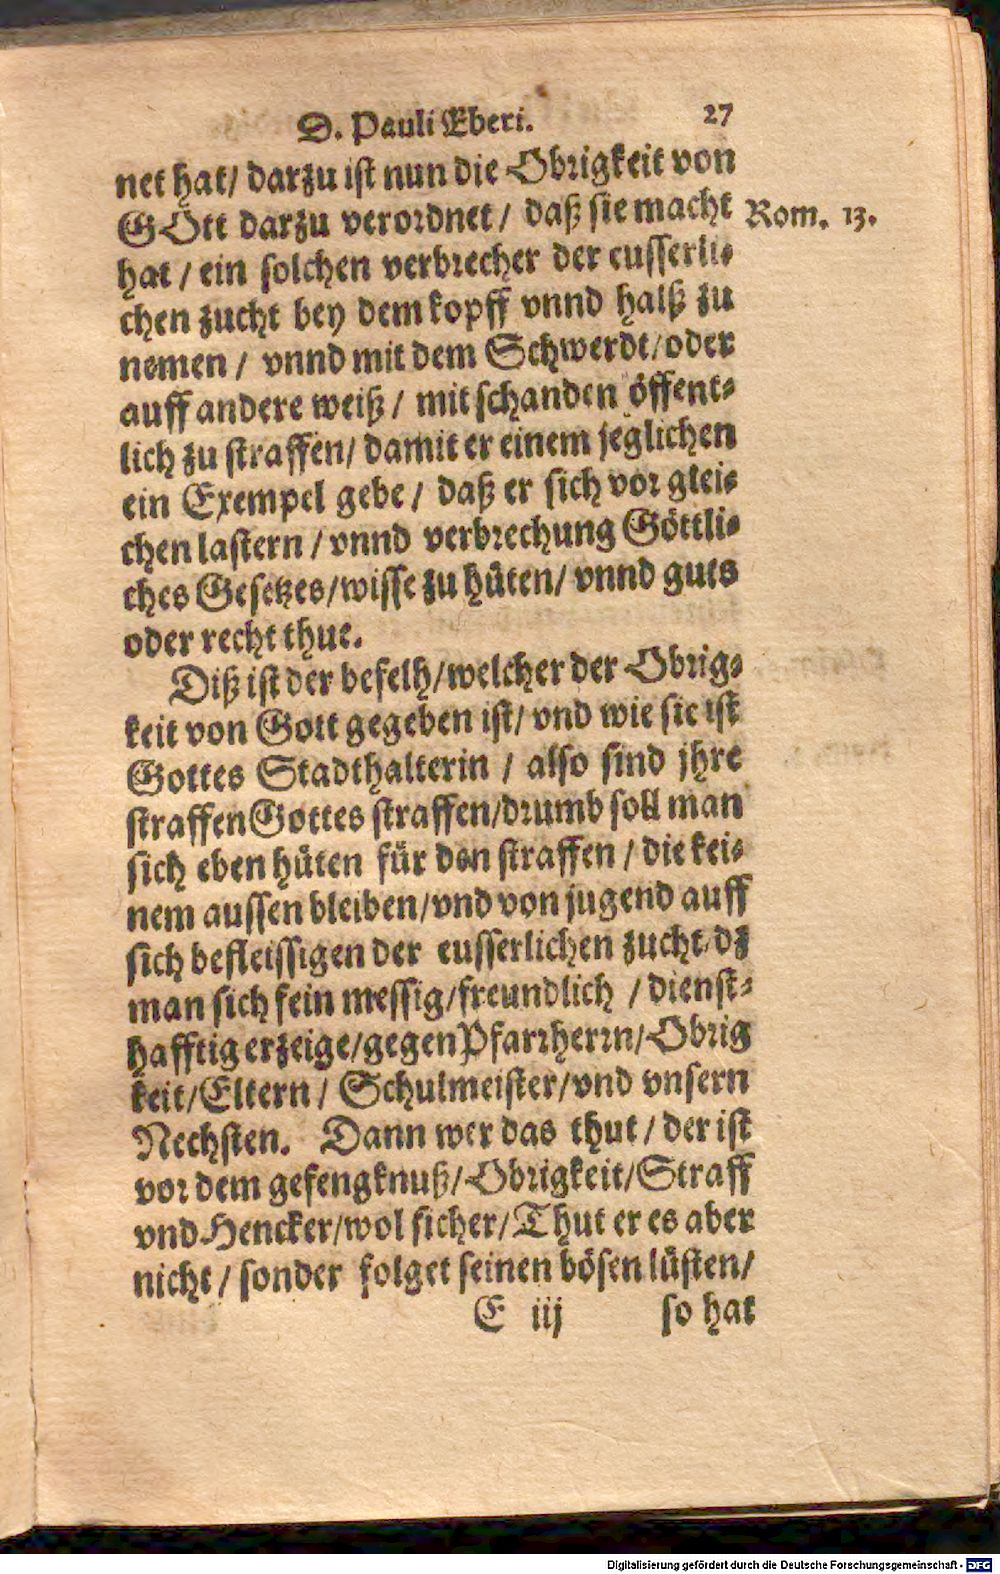 D. Pauli Eberi. 27
net hat/ darzu ist nun die Obrigkeit von
GOtt darzu verordnet / daß sie macht
Rom. 13.
hat / ein solchen verbrecher der eusserli⸗
chen zucht bey dem kopff vnnd halß zu
nemen / vnnd mit dem Schwerdt/oder
auff andere weiß / mit schanden öffent⸗
lich zu straffen/ damit er einem jeglichen
ein Exempel gebe / daß er sich vor glei⸗
chen lastern / vnnd verbrechung Göttli⸗
ches Gesetzes/wisse zu hüten/ vnnd guts
oder recht thue.
Diß ist der befelh/welcher der Obrig⸗
keit von Gott gegeben ist/ vnd wie sie ist
Gottes Stadthalterin / also sind jhre
straffen Gottes straffen/drumb soll man
sich eben hüten für den straffen / die kei⸗
nem aussen bleiben/vnd von jugend auff
sich befleissigen der eusserlichen zucht/dz
man sich fein messig/freundlich / dienst⸗
hafftig erzeige/gegen Pfarrherrn/Obrig
keit/Eltern / Schulmeister/vnd vnsern
Nechsten. Dann wer das thut / der ist
vor dem gefengknuß/Obrigkeit/Straff
vnd Hencker/wol sicher/Thut er es aber
nicht / sonder folget seinen bösen lüsten/
E iij so hat
Digitalisierung gefördert durch die Deutsche Forschungsgemeinschaft - DFG